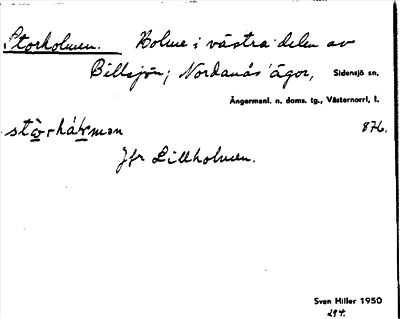 Storholmen. Holme i västra delen av
Billsjön; Nordanås' ägor, Sidensjö sn,
Ångermanl. n. doms. tg., Västernorrl, l.
876.
Jfr Lillholmen.
Sven Hiller 1950
294.